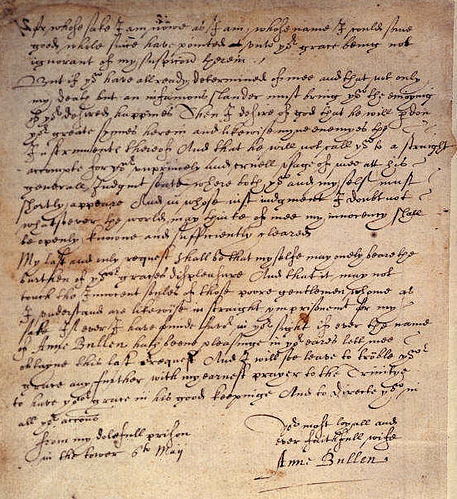 For whose sake I am nowe as I am, whose name I could some
good while since have pointed unto yor grace being not
ignorant of my suspicion therein.
But if yow have allready determined of mee and that not only
my death but an infamous slander must bring yow the enioying
of yor desired happines Then I desire of god that he will pdon
yor greate sinnes herein and likewise my enemyes the
Instruments thereof And that he will not call yow to a straight
accompte for yor unprincely and cruell usage of mee att his
generall Iudgmt seate where both yow and my selfe must
shortly appeare And in whose iust iudgment I doubt not
whatsoever the world may thinke of mee my innocency shall
be openly knowne and sufficiently cleared
My last and only request shall be that my selfe may onely beare the
burthen of yor graces displeasure And that it may not
touch the Innocent soules of those poore gentlemen whome as
I understand are likewise in straight imprisonment for my
sake If ever I have founde favor in yor sight if ever the name
of Anne Bullen hath beene pleasinge in yor eares lett mee
obtayne this last request And I will soe leave to troble yor
grace any further with my earnest prayer to the Trinitye
to have yor grace in his good keepinge And to directe yow in
all yor actions
From my dolefull prison
in the tower 6th May
Yor most loyall and
ever faithfull wife
Anne Bullen